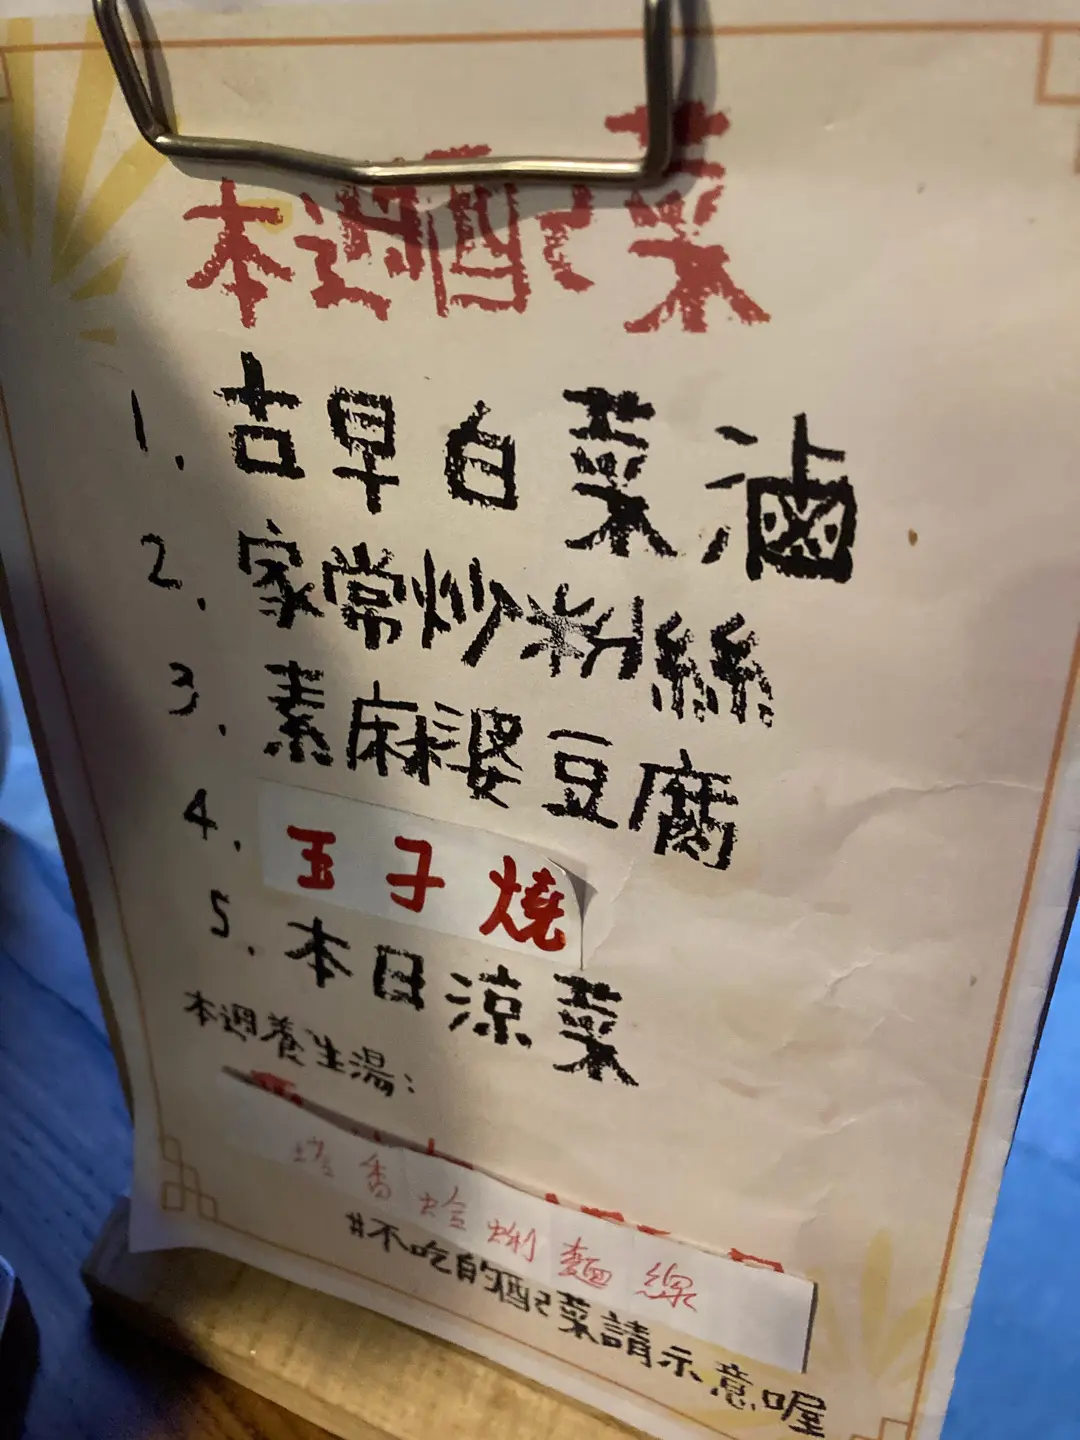 本週配菜
1. 古早白菜滷
2. 家常炒粉絲
3. 素麻婆豆腐
4. 玉子燒
5. 本日涼菜
本週養生湯:
塔香蛤蜊麵線
#不吃的配菜請示意喔